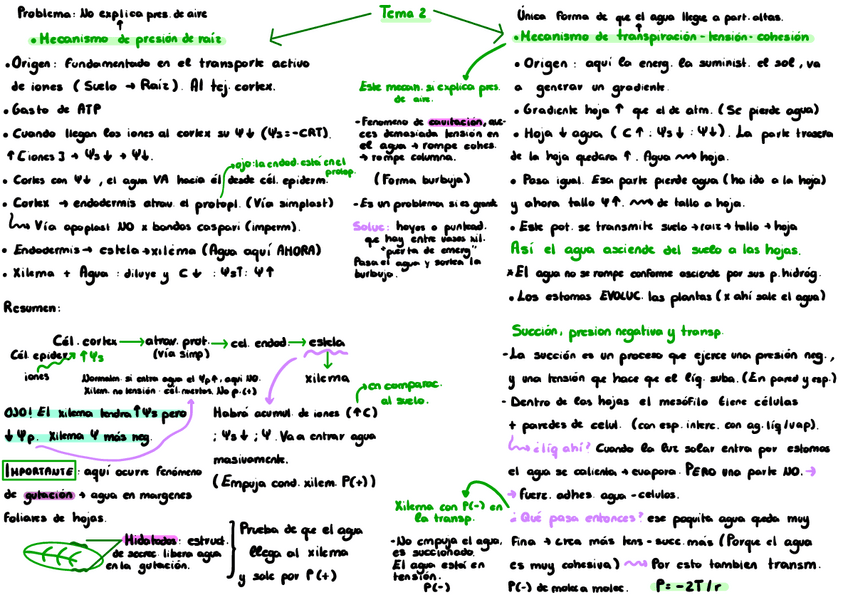 Tema 2
Problema: No explica pres. de aire
• Mecanismo de presión de raíz
• Origen: Fundamentado en el transporte activo
de iones (Suelo → Raíz). Al tej. cortex.
• Gasto de ATP
• Cuando llegan los iones al cortex su Ψ↓ (Ψs=-CRT).
↑[iones] → Ψs↓ → Ψ↓.
→ojo: la endod. está en el
protop.
• Cortex con Ψ↓, el agua VA hacia él desde cél. epiderm.
• Cortex → endodermis atrav. el protopl. (Vía simplast)
Vía apoplast NO x bandas caspari (imperm).
• Endodermis → estela → xilema (Agua aquí AHORA)
• Xilema + Agua : diluye y C↓ : Ψs↑: Ψ↑
Resumen:
Cél. cortex → atrav. prot. → cel. endod. → estela
(Vía simp)
Cél. epider. ↑Ψs
iones
xilema
Normalm. si entra agua el Ψp↑, aquí NO.
Xilem. no tensión : cél. muertas. No p.(+)
→en comparac.
al suelo.
OJO! El xilema tendra ↑Ψs pero
↓Ψp. Xilema Ψ más neg.
Habrá acumul. de iones (↑C)
; Ψs↓ ; Ψ. Va a entrar agua
masivamente.
(Empuja cond. xilem. P(+))
IMPORTANTE: aquí ocurre fenómeno
de gutación → agua en margenes
Foliares de hojas.
Hidatodos: estruct.
de secrec. libera agua
en la gutación.
Prueba de que el agua
llega al xilema
y sale por P(+)
Este mecan. si explica pres.
de aire.
- Fenomeno de cavitación, a ve-
ces demasiada tensión en
el agua → rompe cohes.
→ rompe columna.
(Forma burbuja)
- Es un problema si es grande
Soluc: hoyos o puntead.
que hay entre vasos xil.
"puerta de emerg"
Pasa el agua y sortea la
burbuja.
Xilema con P(-) en
la transp.
- No empuja el agua,
es succionado.
El agua está en
tensión.
P(-)
Única forma de que el agua llegue a part. altas.
• Mecanismo de transpiración - tensión - cohesión
• Origen : aquí la energ. la suminist. el sol, va
a generar un gradiente.
• Gradiente hoja ↑ que el de atm. (Se pierde agua)
• Hoja ↓ agua (C↑ : Ψs↓ : Ψ↓). La parte trasera
de la hoja quedara ↑. Agua → hoja.
• Pasa igual. Esa parte pierde agua (ha ido a la hoja)
y ahora tallo Ψ↑. → de tallo a hoja.
• Este pot. se transmite suelo → raíz → tallo → hoja
Así el agua asciende del suelo a las hojas.
* El agua no se rompe conforme asciende por sus p. hidróg.
• Los estomas EVOLUC. las plantas (x ahí sale el agua)
Succión, presion negativa y transp.
- La succión es un proceso que ejerce una presión neg.,
y una tensión que hace que el líq. suba. (En pared y esp.)
- Dentro de las hojas el mesófilo tiene células
+ paredes de celul. (con esp. interc. con ag. líq/vap).
¿líq ahí? Cuando la luz solar entra por estomas
el agua se calienta → evapora. PERO una parte NO. →
→ Fuerc. adhes. agua - celulos.
¿Qué pasa entonces? ese poquita agua queda muy
Fina → crea más tens - succ. más (Porque el agua
es muy cohesiva) → Por esto tambien transm.
P(-) de molec a molec. P = -2T/r